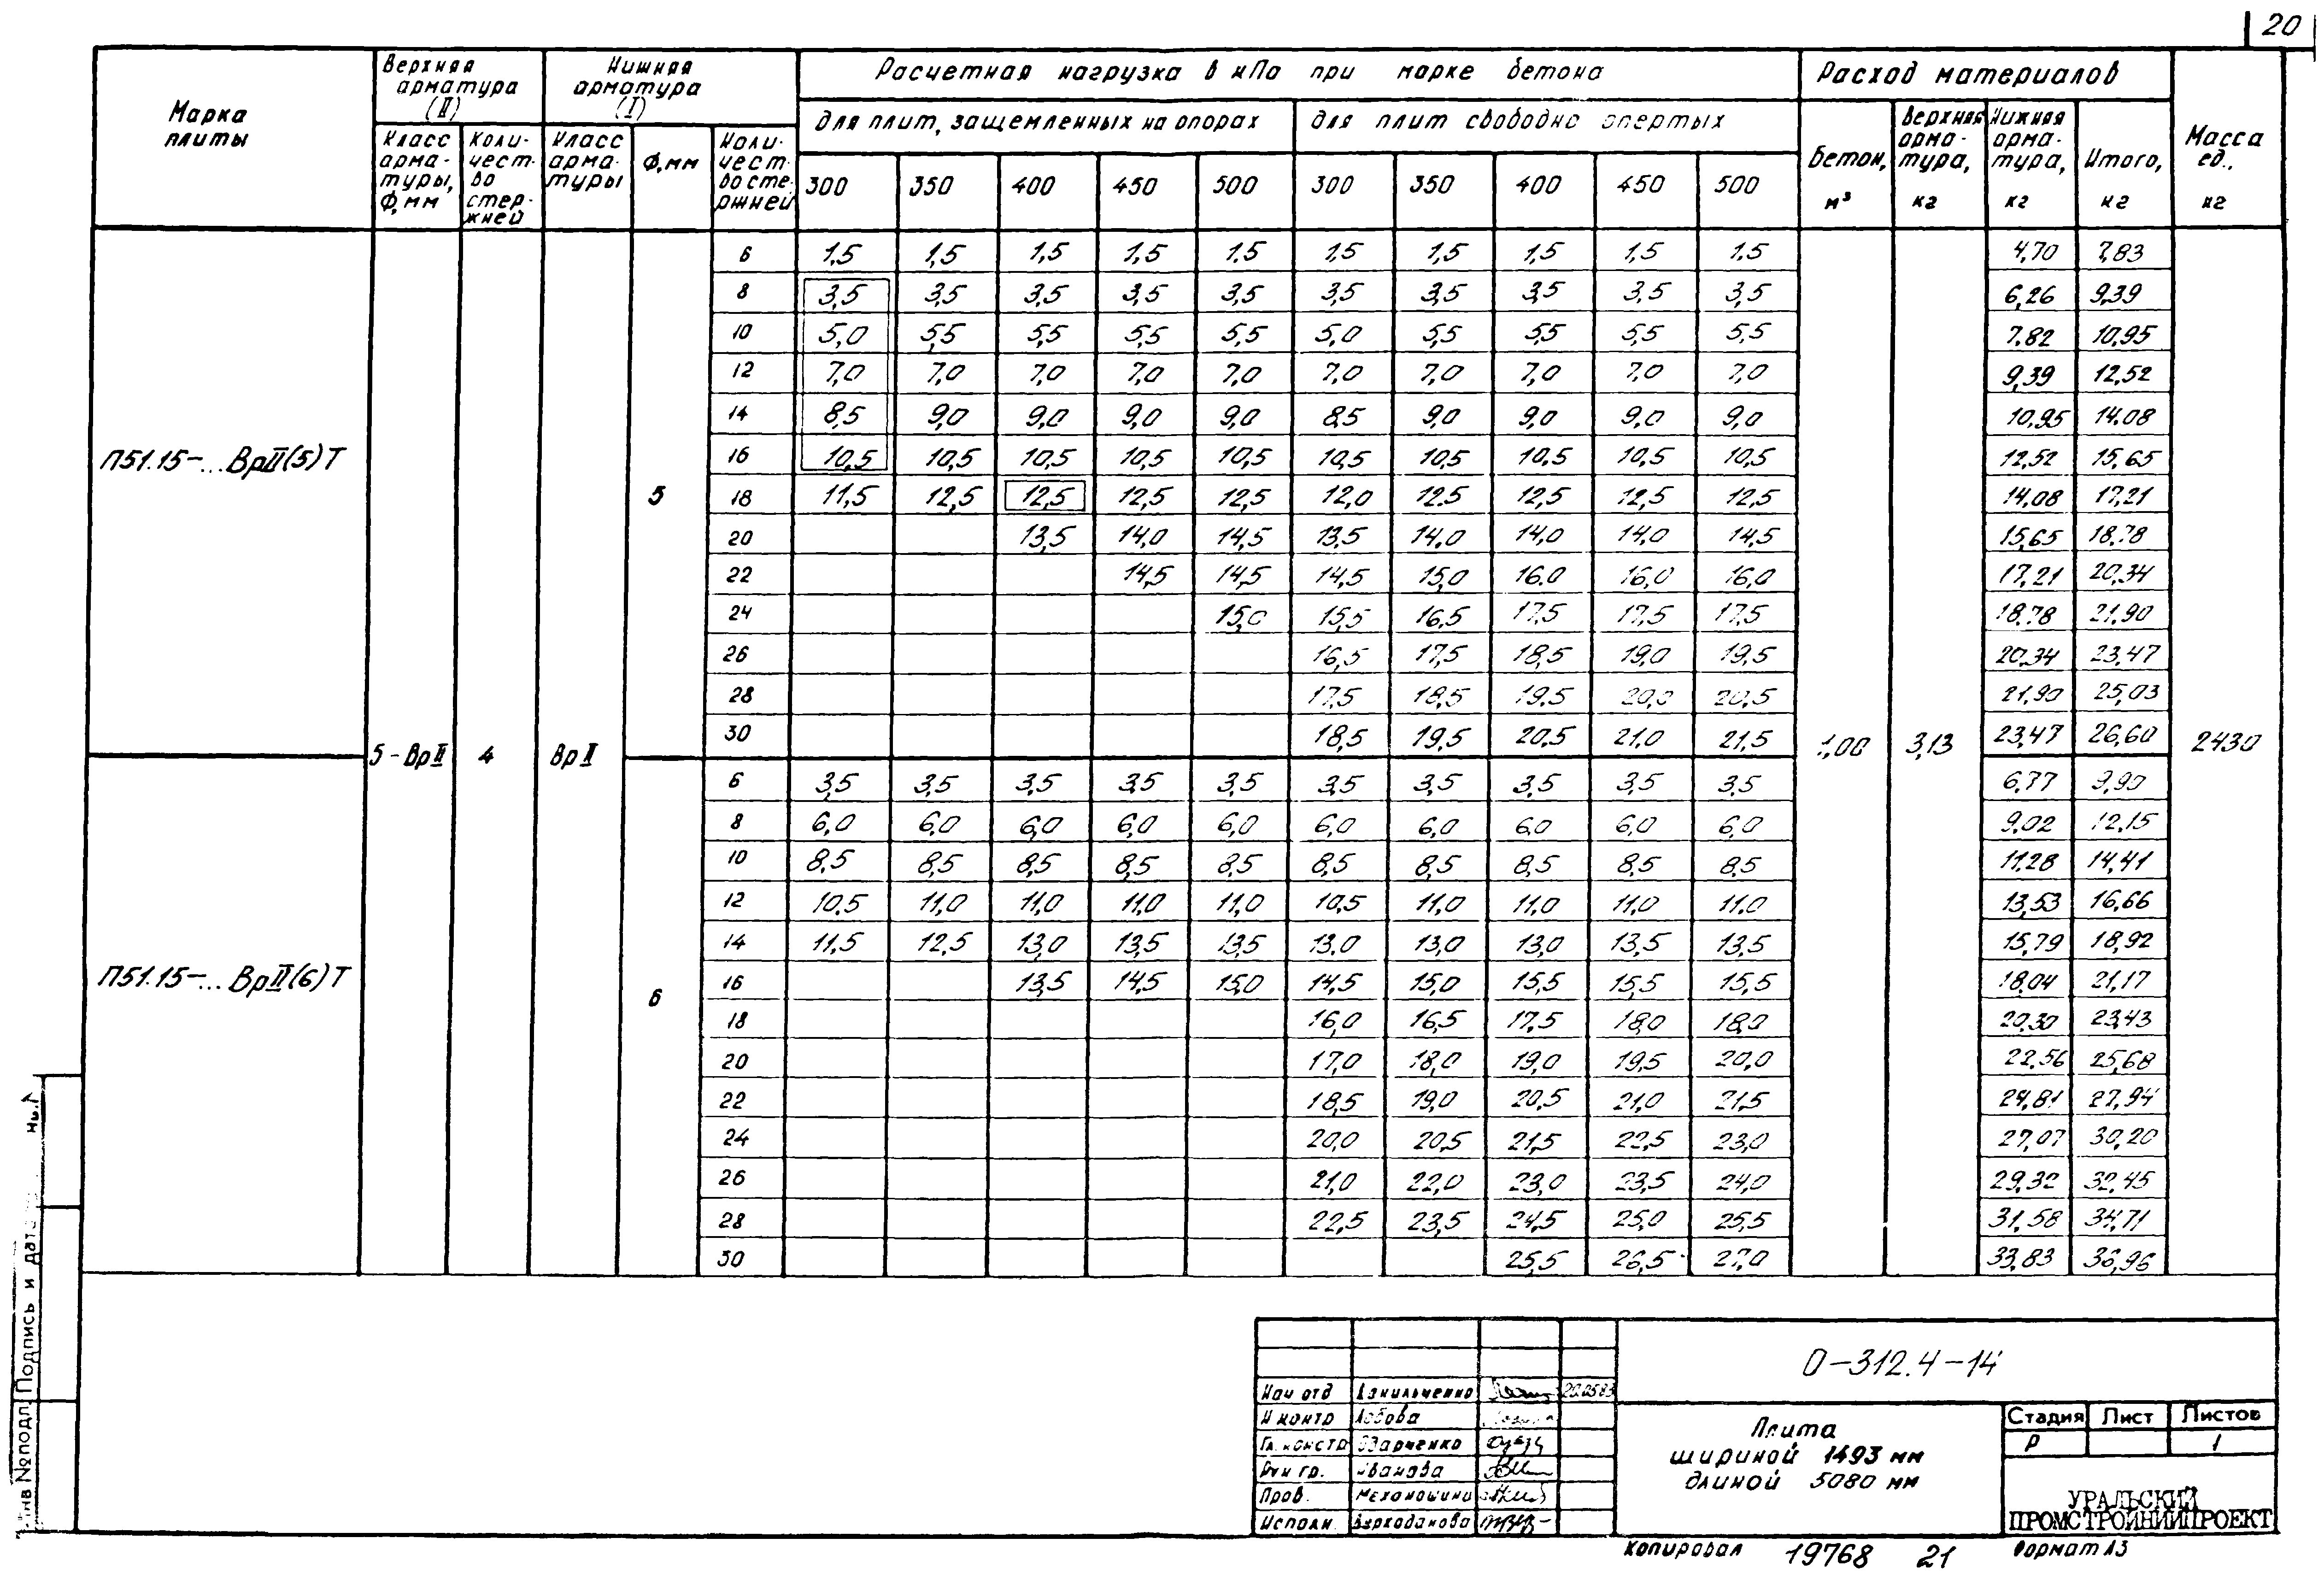 20
Марка плиты
Верхняя арматура (II)
Нижняя арматура (I)
Расчетная нагрузка в кПа при марке бетона
Расход материалов
Масса ед., кг
для плит, защемленных на опорах
для плит свободно опертых
Класс арма-туры, Ф,мм
Коли-чест-во стер-жней
Класс арма-туры
Ф,мм
Коли-чест-во сте-ржней
300 350 400 450 500 300 350 400 450 500
Бетон, м³
Верхняя арма-тура, кг
Нижняя арма-тура, кг
Итого, кг
П51.15-...ВрII(5)Т
5-ВрII 4 ВрII
5
6 1,5 1,5 1,5 1,5 1,5 1,5 1,5 1,5 1,5 1,5 4,70 7,83
8 3,5 3,5 3,5 3,5 3,5 3,5 3,5 3,5 3,5 3,5 6,26 9,39
10 5,0 5,5 5,5 5,5 5,5 5,0 5,5 5,5 5,5 5,5 7,82 10,95
12 7,0 7,0 7,0 7,0 7,0 7,0 7,0 7,0 7,0 7,0 9,39 12,52
14 8,5 9,0 9,0 9,0 9,0 8,5 9,0 9,0 9,0 9,0 10,95 14,08
16 10,5 10,5 10,5 10,5 10,5 10,5 10,5 10,5 10,5 10,5 12,52 15,65
18 11,5 12,5 12,5 12,5 12,5 12,0 12,5 12,5 12,5 12,5 14,08 17,21
20 13,5 14,0 14,5 13,5 14,0 14,0 14,0 14,5 15,65 18,78
22 14,5 14,5 14,5 15,0 16,0 16,0 16,0 17,21 20,34
24 15,0 15,5 16,5 17,5 17,5 17,5 18,78 21,90
26 16,5 17,5 18,5 19,0 19,5 20,34 23,47
28 17,5 18,5 19,5 20,0 20,5 21,90 25,03
30 18,5 19,5 20,5 21,0 21,5 23,47 26,60
1,00 3,13 2430
П51.15-...ВрII(6)Т
6
6 3,5 3,5 3,5 3,5 3,5 3,5 3,5 3,5 3,5 3,5 6,77 9,90
8 6,0 6,0 6,0 6,0 6,0 6,0 6,0 6,0 6,0 6,0 9,02 12,15
10 8,5 8,5 8,5 8,5 8,5 8,5 8,5 8,5 8,5 8,5 11,28 14,41
12 10,5 11,0 11,0 11,0 11,0 10,5 11,0 11,0 11,0 11,0 13,53 16,66
14 11,5 12,5 13,0 13,5 13,5 13,0 13,0 13,0 13,5 13,5 15,79 18,92
16 13,5 14,5 15,0 14,5 15,0 15,5 15,5 15,5 18,04 21,17
18 16,0 16,5 17,5 18,0 18,0 20,30 23,43
20 17,0 18,0 19,0 19,5 20,0 22,56 25,68
22 18,5 19,0 20,5 21,0 21,5 24,81 27,94
24 20,0 20,5 21,5 22,5 23,0 27,07 30,20
26 21,0 22,0 23,0 23,5 24,0 29,32 32,45
28 22,5 23,5 24,5 25,0 25,5 31,58 34,71
30 25,5 26,5 27,0 33,83 36,96
О-312.4-14
Нач отд Данильченко 20.05.83
Н контр Лобова
Гл. констр
Рук гр. Иванова
Пров.
Исполн.
Плита
шириной 1493 мм
длиной 5080 мм
Стадия Лист Листов
Р 1
УРАЛЬСКИЙ
ПРОМСТРОЙНИИПРОЕКТ
Копировал 19768 21 Формат А3
Инв №подл. Подпись и дата